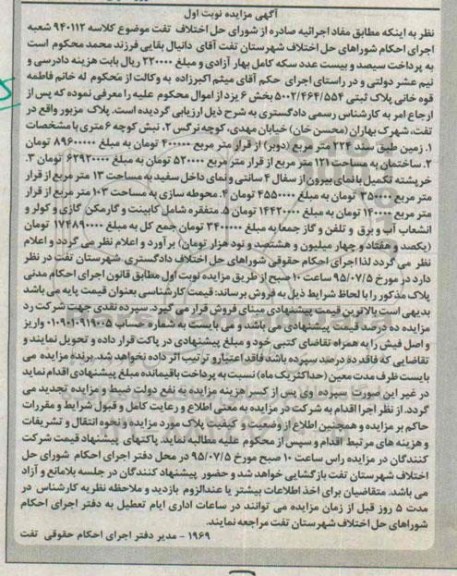 آگهی مزایده نوبت اول
نظر به اینکه مطابق مفاد اجرائیه صادره از شورای حل اختلاف تفت موضوع کلاسه ۹۴۰۱۱۳ شعبه
اجرای احکام شوراهای حل اختلاف شهرستان تفت آقای دانیال بقایی فرزند محمد محکوم است
به پرداخت سیصد و بیست عدد سکه کامل بهار آزادی و مبلغ ۲۲۰۰۰۰ ریال بابت هزینه دادرسی و
نیم عشر دولتی و در راستای اجرای حکم آقای میثم اکبرزاده به وکالت از محکوم له خانم فاطمه
قوه خانی پلاک ثبتی ۵۰۰۲/۴۶۴/۵۵۴ بخش ۶ یزد از اموال محکوم علیه را معرفی نموده که پس از
ارجاع امر به کارشناس رسمی دادگستری به شرح ذیل ارزیابی گردیده است. پلاک مزبور واقع در
تفت، شهرک بهاران (محسن خان) خیابان مهدی، کوچه نرگس ۲، نبش کوچه ۶ متری با مشخصات
۱. زمین طبق سند ۲۲۴ متر مربع (دوبر) از قرار متر مربع ۴۰۰۰۰۰ تومان به مبلغ ۸۹۶۰۰۰۰۰ تومان
۲. ساختمان به مساحت ۱۲۱ متر مربع از قرار متر مربع ۵۲۰۰۰۰ تومان به مبلغ ۶۲۹۲۰۰۰۰ تومان ۳.
خرپشته تکمیل با نمای بیرون از سفال ۴ سانتی و نمای داخل سفید به مساحت ۱۳ متر مربع از قرار
متر مربع ۳۵۰۰۰۰ تومان به مبلغ ۴۵۵۰۰۰۰ تومان ۴. محوطه سازی به مساحت ۱۰۳ متر مربع از قرار
متر مربع ۱۴۰۰۰۰ تومان به مبلغ ۱۴۴۲۰۰۰۰ تومان ۵. متفرقه شامل کابینت و گازرمکن گازی و کولر و
انشعاب آب و برق و تلفن و گاز جمعا به مبلغ ۳۴۰۰۰۰۰ تومان جمع کل به مبلغ ۱۷۴۸۹۰۰۰۰ تومان
(یکصد و هفتاد و چهار میلیون و هشتصد و نود هزار تومان) برآورد و اعلام نظر می گردد و اعلام
نظر می گردد لذا اجرای احکام حقوقی شوراهای حل اختلاف دادگستری شهرستان تفت در نظر
دارد در مورخ ۹۵/۰۷/۵ ساعت ۱۰ صبح از طریق مزایده نوبت اول مطابق قانون اجرای احکام مدنی
پلاک مذکور را با لحاظ شرایط ذیل به فروش برساند: قیمت کارشناسی بعنوان قیمت پایه می باشد
بدیهی است بالاترین قیمت پیشنهادی مبنای فروش قرار می گیرد. سپرده نقدی جهت شرکت در
مزایده ده درصد قیمت پیشنهادی می باشد و می بایست به شماره حساب ۰۱۰۹۰۱۰۹۱۹۰۰۵ واریز
و اصل فیش را به همراه تقاضای کتبی خود و مبلغ پیشنهادی در پاکت قرار داده و تحویل نمایند و
تقاضایی که فاقد ده درصد سپرده باشد فاقد اعتبار و ترتیب اثر داده نخواهد شد. برنده مزایده می
بایست ظرف مدت معین (حداکثر یک ماه) نسبت به پرداخت باقیمانده مبلغ پیشنهادی اقدام نماید
در غیر این صورت سپرده وی پس از کسر هزینه مزایده به نفع دولت ضبط و مزایده تجدید می
گردد. از نظر اجرا اقدام به شرکت در مزایده به معنی اطلاع و رعایت کامل و قبول شرایط و مقررات
حاکم بر مزایده و همچنین اطلاع از وضعیت و کیفیت پلاک مورد مزایده و نحوه انتقال و تشریفات
و هزینه های مرتبط اقدام و سپس از محکوم علیه مطالبه نماید. پاکتهای پیشنهاد قیمت شرکت
کنندگان در مزایده راس ساعت ۱۰ صبح مورخ ۹۵/۰۷/۵ در محل دفتر اجرای احکام شورای حل
اختلاف شهرستان تفت بازگشایی خواهد شد و حضور پیشنهاد کنندگان در جلسه بلامانع و آزاد
می باشد. متقاضیان برای اخذ اطلاعات بیشتر یا عندالزوم بازدید و ملاحظه نظریه کارشناس در
مدت ۵ روز قبل از زمان مزایده می توانند در ساعات اداری ایام تعطیل به دفتر اجرای احکام
شوراهای حل اختلاف شهرستان تفت مراجعه نمایند.
۱۹۶۹ - مدیر دفتر اجرای احکام حقوقی تفت